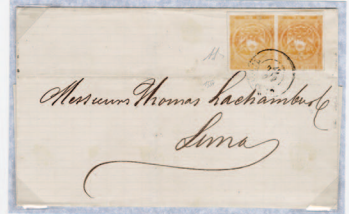 Messieurs Thomas Lachambre & C
Lima